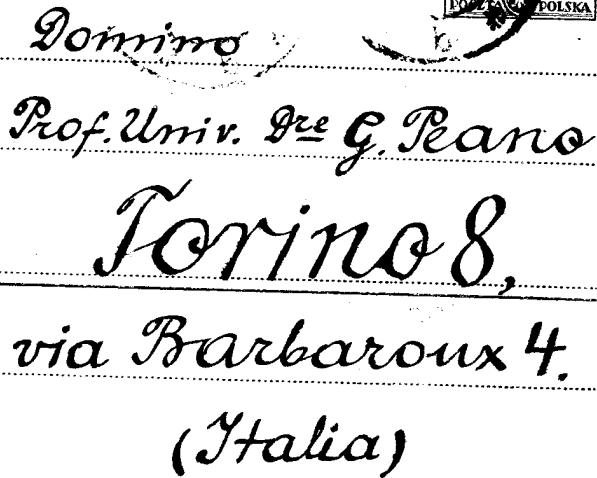 POCZTA POLSKA
Domino
Prof. Univ. Dre G. Peano
Torino 8,
via Barbaroux 4.
(Italia)